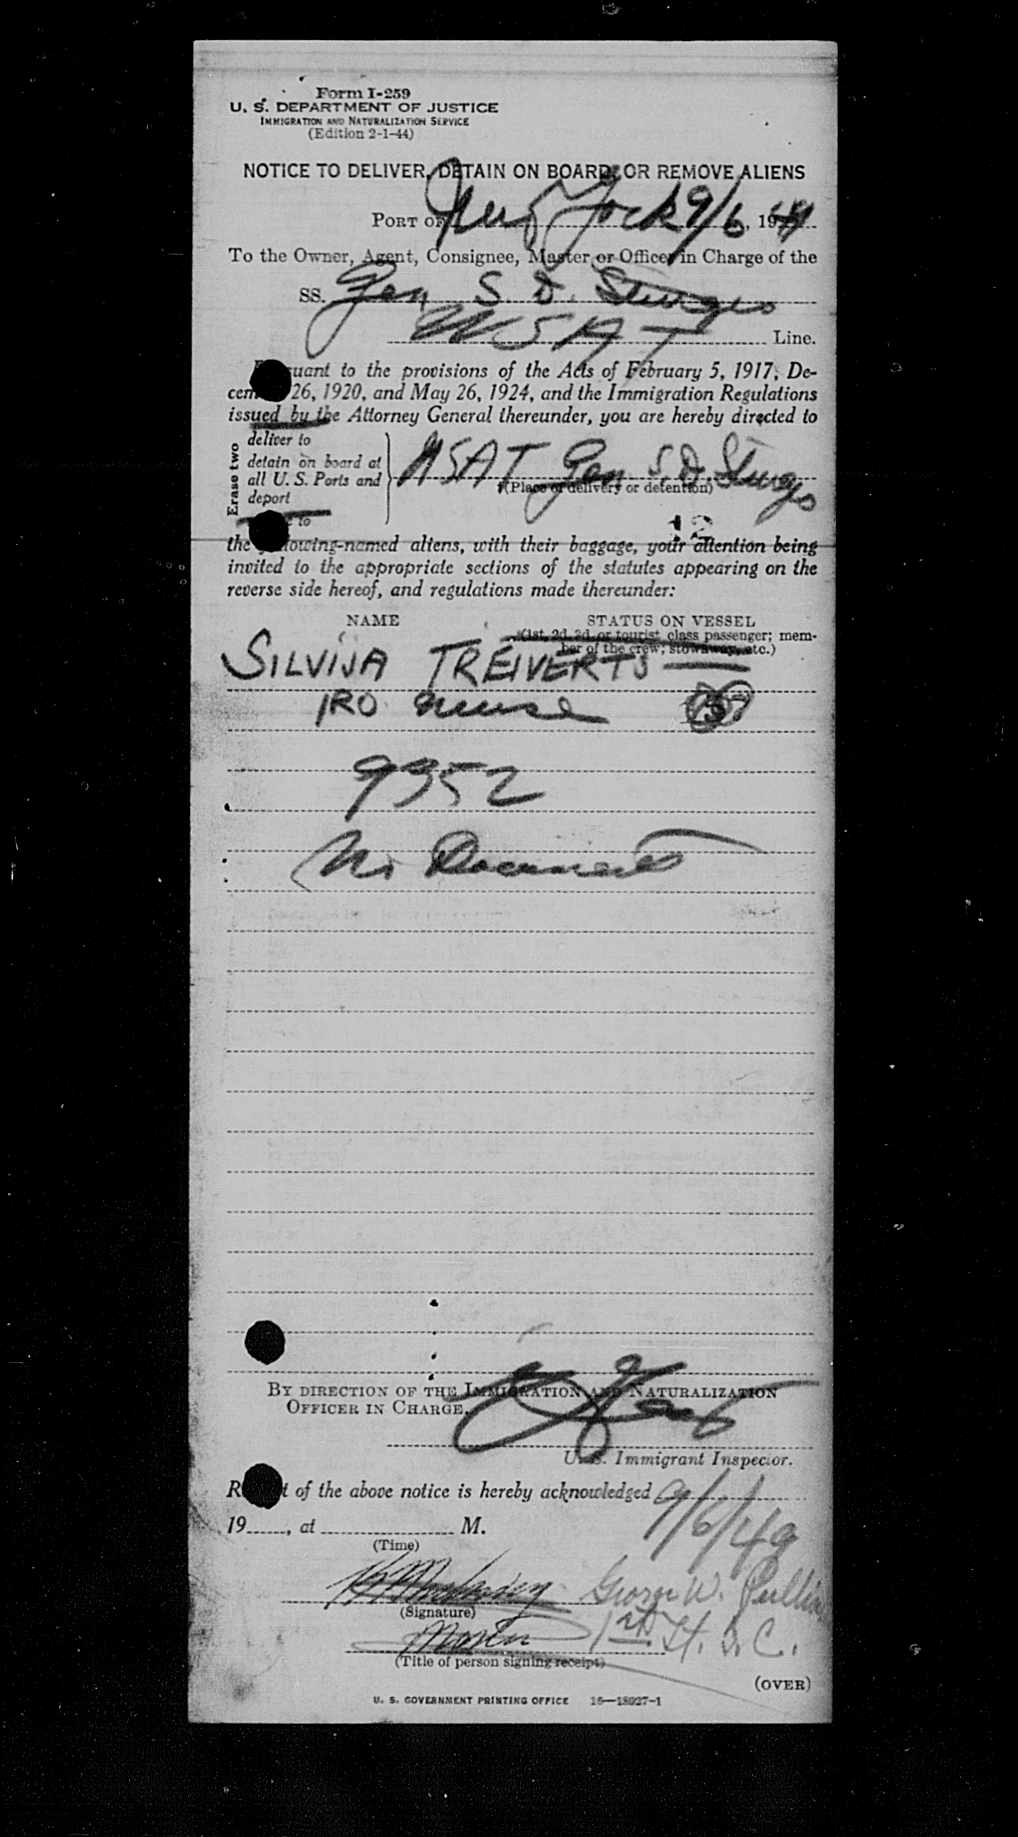 Form I-259
U. S. DEPARTMENT OF JUSTICE
IMMIGRATION AND NATURALIZATION SERVICE
(Edition 2-1-44)
NOTICE TO DELIVER, DETAIN ON BOARD, OR REMOVE ALIENS
PORT OF New York 9/6, 19
To the Owner, Agent, Consignee, Master or Officer in Charge of the
SS. Gen S. D. Sturgis
USAT Line.
Pursuant to the provisions of the Acts of February 5, 1917, De-
cember 26, 1920, and May 26, 1924, and the Immigration Regulations
issued by the Attorney General thereunder, you are hereby directed to
Erase two
deliver to
detain on board at
all U. S. Ports and
deport
to
USAT Gen S. D. Sturgis
(Place of delivery or detention)
12
the following-named aliens, with their baggage, your attention being
invited to the appropriate sections of the statutes appearing on the
reverse side hereof, and regulations made thereunder:
NAME STATUS ON VESSEL
(1st, 2d, 3d, or tourist class passenger; mem-
ber of the crew; stowaway, etc.)
SILVIJA TREIVERTS
IRO nurse
9352
No Documents
BY DIRECTION OF THE IMMIGRATION AND NATURALIZATION
OFFICER IN CHARGE.
U. S. Immigrant Inspector.
Receipt of the above notice is hereby acknowledged 9/6/49
19 , at M.
(Time)
George W.
(Signature)
Master 1st Lt. T. C.
(Title of person signing receipt)
(OVER)
U. S. GOVERNMENT PRINTING OFFICE 16—18927-1